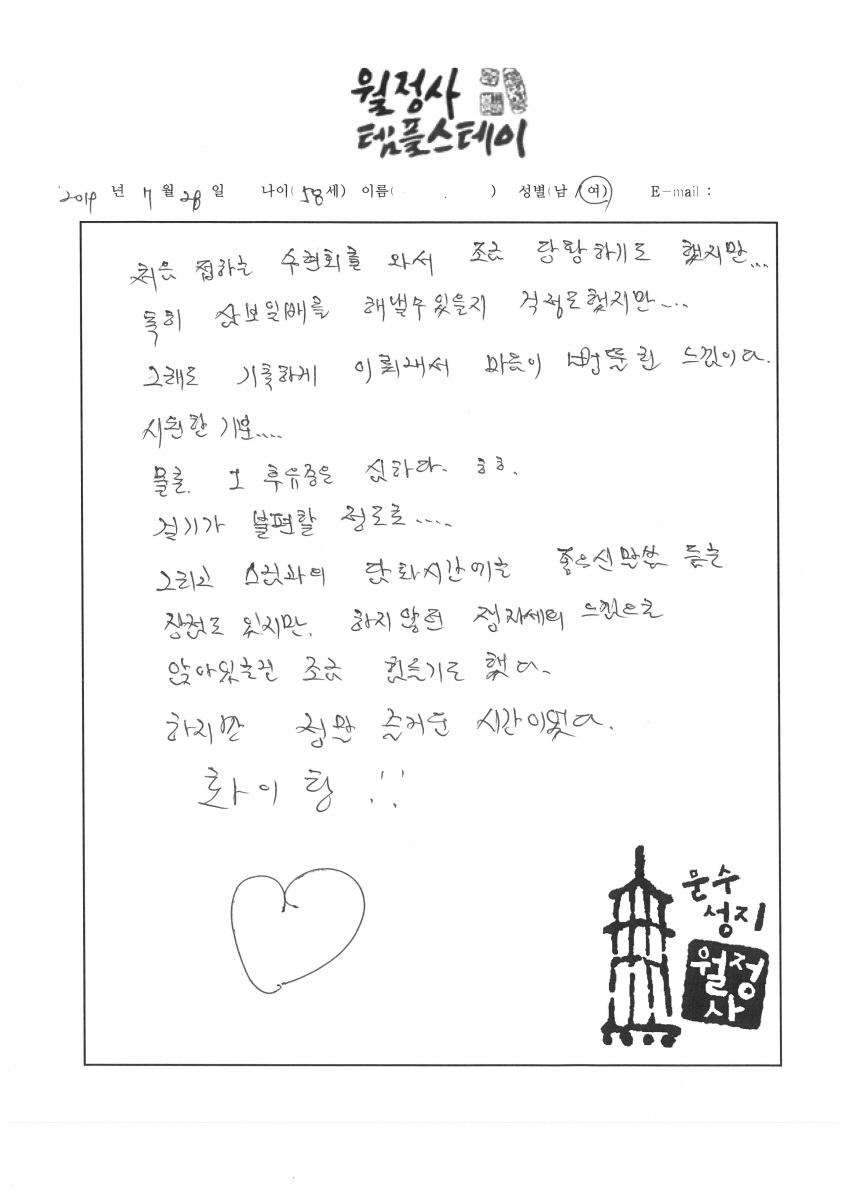 월정사
템플스테이
2014 년 7 월 28 일 나이( 58 세) 이름( ) 성별(남 / 여) E-mail :
처음 접하는 수련회를 와서 조금 당황하기도 했지만...
특히 삼보일배를 해낼수있을지 걱정도했지만...
그래도 기특하게 이뤄내서 마음이 뻥뚫린 느낌이다.
시원한 기분....
물론. 그 후유증은 심하다. ㅎㅎ.
걷기가 불편할 정도로....
그리고 스님과의 담화시간에는 좋으신말씀 듣는
장점도 있지만, 하지않던 정자세의 느낌으로
앉아있는건 조금 힘들기도 했다.
하지만 정말 즐거운 시간이었다.
화이팅 !!
문수
성지
월정
사